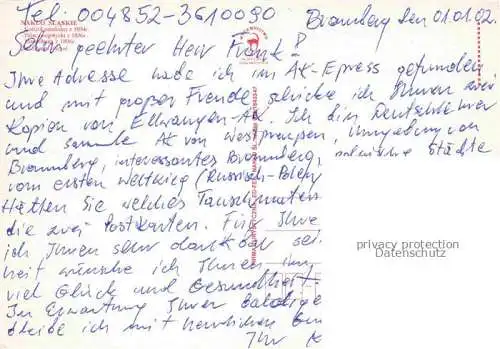 Tel. 004852-3610090
Bromberg den 01.01.02.
NAKŁO ŚLĄSKIE
Sehr geehrter Herr Frank!
Ihre Adresse habe ich im AK-Epress gefunden
und mit großer Freude schicke ich Ihnen zwei
Kopien von Ellwangen-AK. Ich bin Deutschlehrer
und sammle AK von Westpreußen, Umgebung von
Bromberg, interessantes Bromberg, polnische Städte
vom ersten Weltkrieg (Russisch-Polen)
Hätten Sie welches Tauschmaterial
die zwei Postkarten. Für Ihre
ich Ihnen sehr dankbar sei.
heit wünsche ich Ihnen im
viel Glück und Gesundheit
In Erwartung Ihrer baldige
bleibe ich mit herzlichen
Ihr
privacy protection